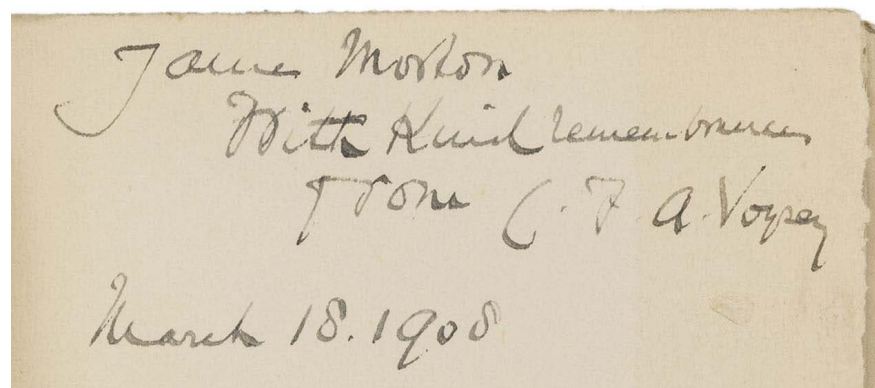 James Morton
With Kind remembrances
from C. F. A. Voysey
March 18. 1908